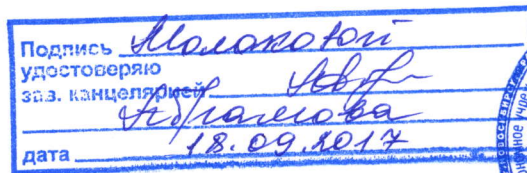 Подпись Молоковой
удостоверяю
зав. канцелярией
Абрамова
дата 18.09.2017